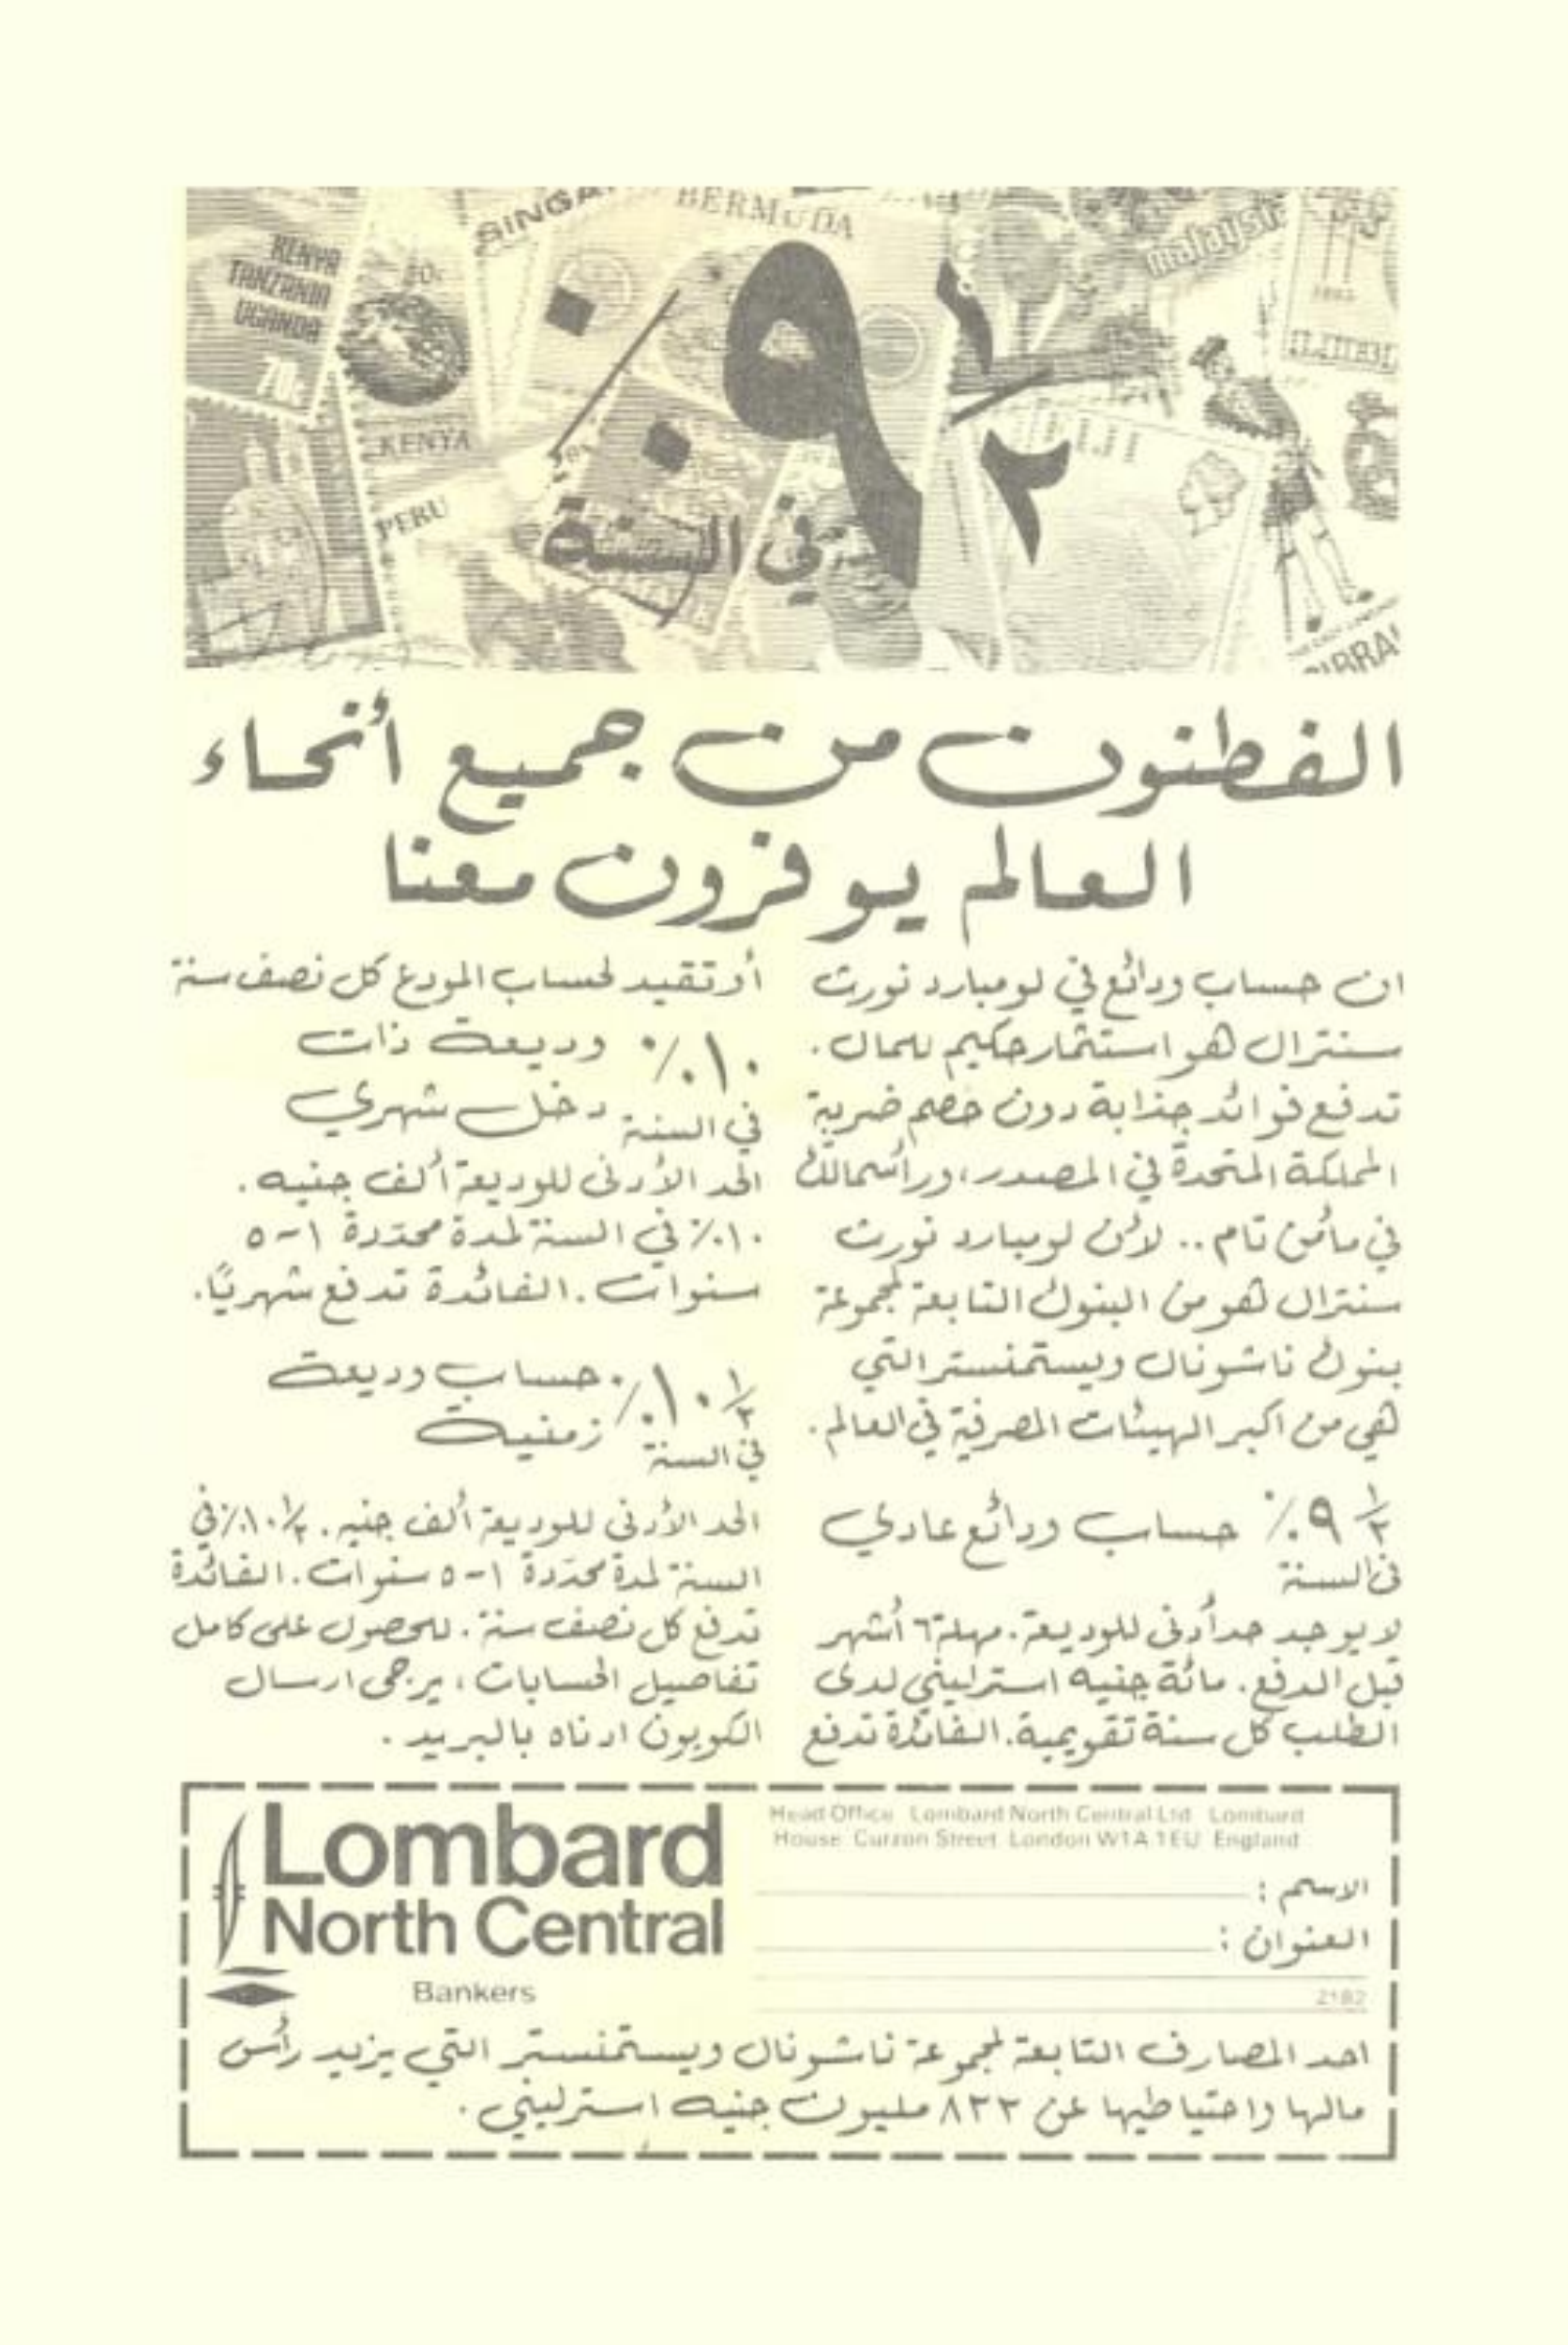 KENYA
TANZANIA
UGANDA
70c
KENYA
PERU
BERMUDA
malaysia
FIJI
٩ ١/٢ ٪
في السنة
الفطنون من جميع أنحاء
العالم يوفرون معنا
ان حساب ودائع في لومبارد نورث
سنترال هو استثمار حكيم للمال.
تدفع فوائد جذابة دون خصم ضريبة
المملكة المتحدة في المصدر، ورأسمالك
في مأمن تام.. لأن لومبارد نورث
سنترال هو من البنوك التابعة لمجموعة
بنوك ناشونال ويستمنستر التي
هي من اكبر الهيئات المصرفية في العالم.
٩ ١/٢ ٪ حساب ودائع عادي
في السنة
لا يوجد حد أدنى للوديعة. مهلة ٦ أشهر
قبل الدفع. مائة جنيه استرليني لدى
الطلب كل سنة تقويمية. الفائدة تدفع
أو تقيد لحساب المودع كل نصف سنة
١٠٪ وديعة ذات
في السنة دخل شهري
الحد الأدنى للوديعة ألف جنيه.
١٠٪ في السنة لمدة محددة ١-٥
سنوات. الفائدة تدفع شهريًا.
١٠ ١/٢ ٪ حساب وديعة
في السنة زمنية
الحد الأدنى للوديعة ألف جنيه. ١٠ ١/٢ ٪ في
السنة لمدة محددة ١-٥ سنوات. الفائدة
تدفع كل نصف سنة. للحصول على كامل
تفاصيل الحسابات، يرجى ارسال
الكوبون ادناه بالبريد.
Lombard
North Central
Bankers
Head Office Lombard North Central Ltd Lombard
House Curzon Street London W1A 1EU England
الاسم :
العنوان :
2182
احد المصارف التابعة لمجموعة ناشونال ويستمنستر التي يزيد رأس
مالها واحتياطيها عن ٨٢٣ مليون جنيه استرليني.